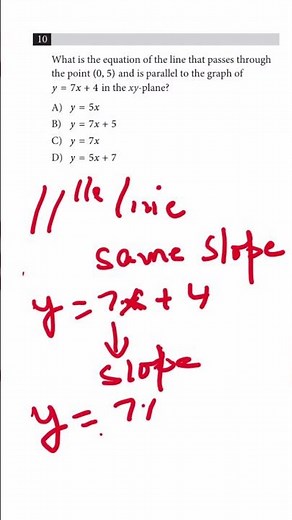 10
What is the equation of the line that passes through
the point (0, 5) and is parallel to the graph of
y = 7x + 4 in the xy-plane?
A) y = 5x
B) y = 7x + 5
C) y = 7x
D) y = 5x + 7
// lle line
same slope
y = 7x + 4
↓
slope
y = 7